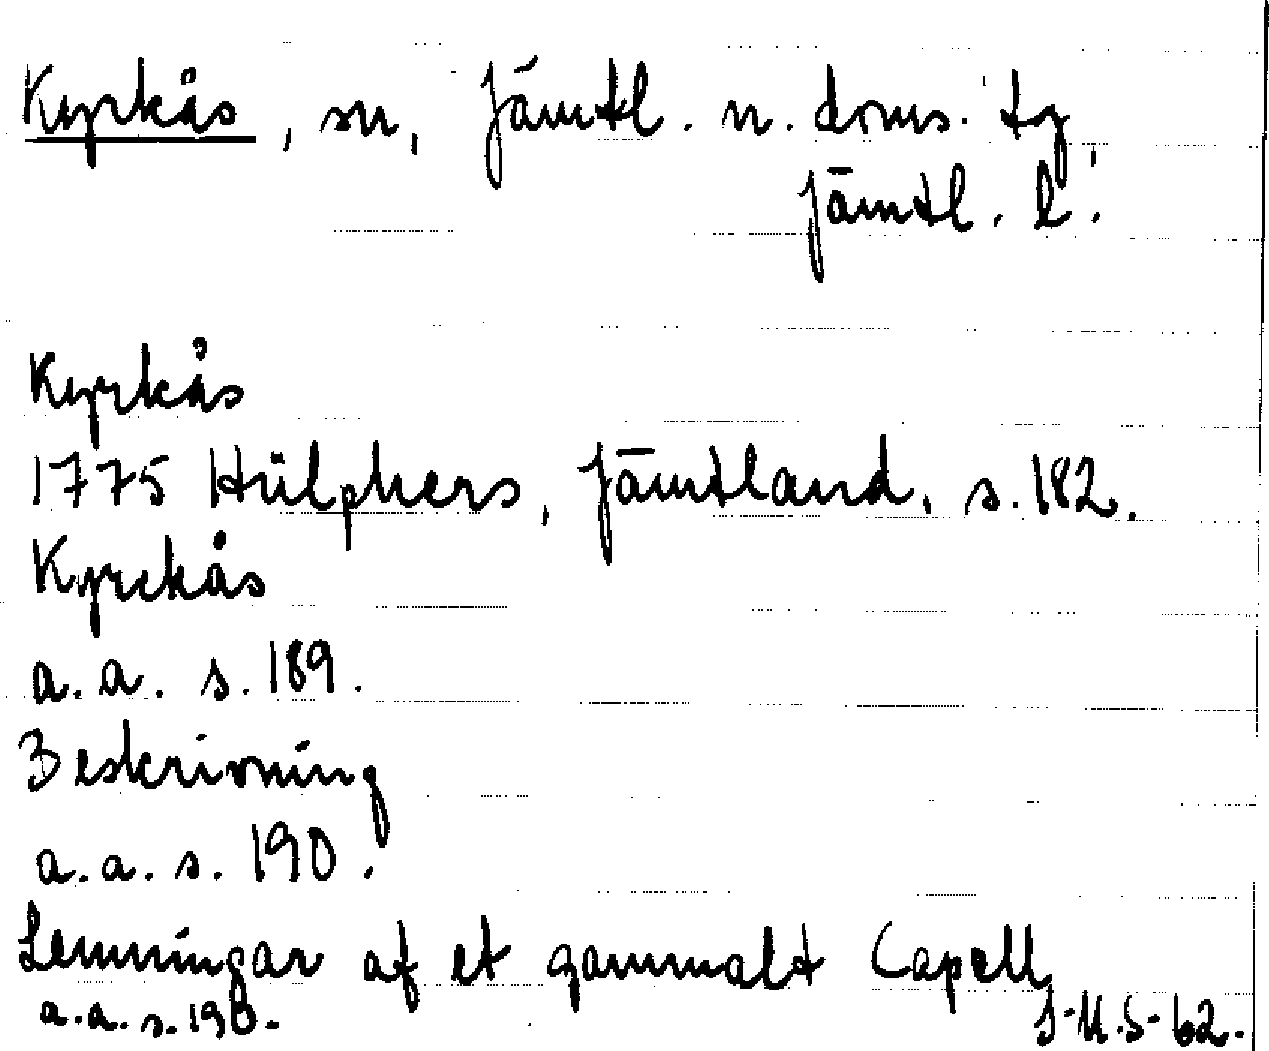 Kyrkås, sn, Jämtl. n. doms. tg
Jämtl. l.
Kyrkås
1775 Hülphers, Jämtland, s. 182.
Kyrckås
a. a. s. 189.
Beskrivning
a. a. s. 190.
Lemningar af et gammalt Capell
a. a. s. 190.
J-U.S-62.